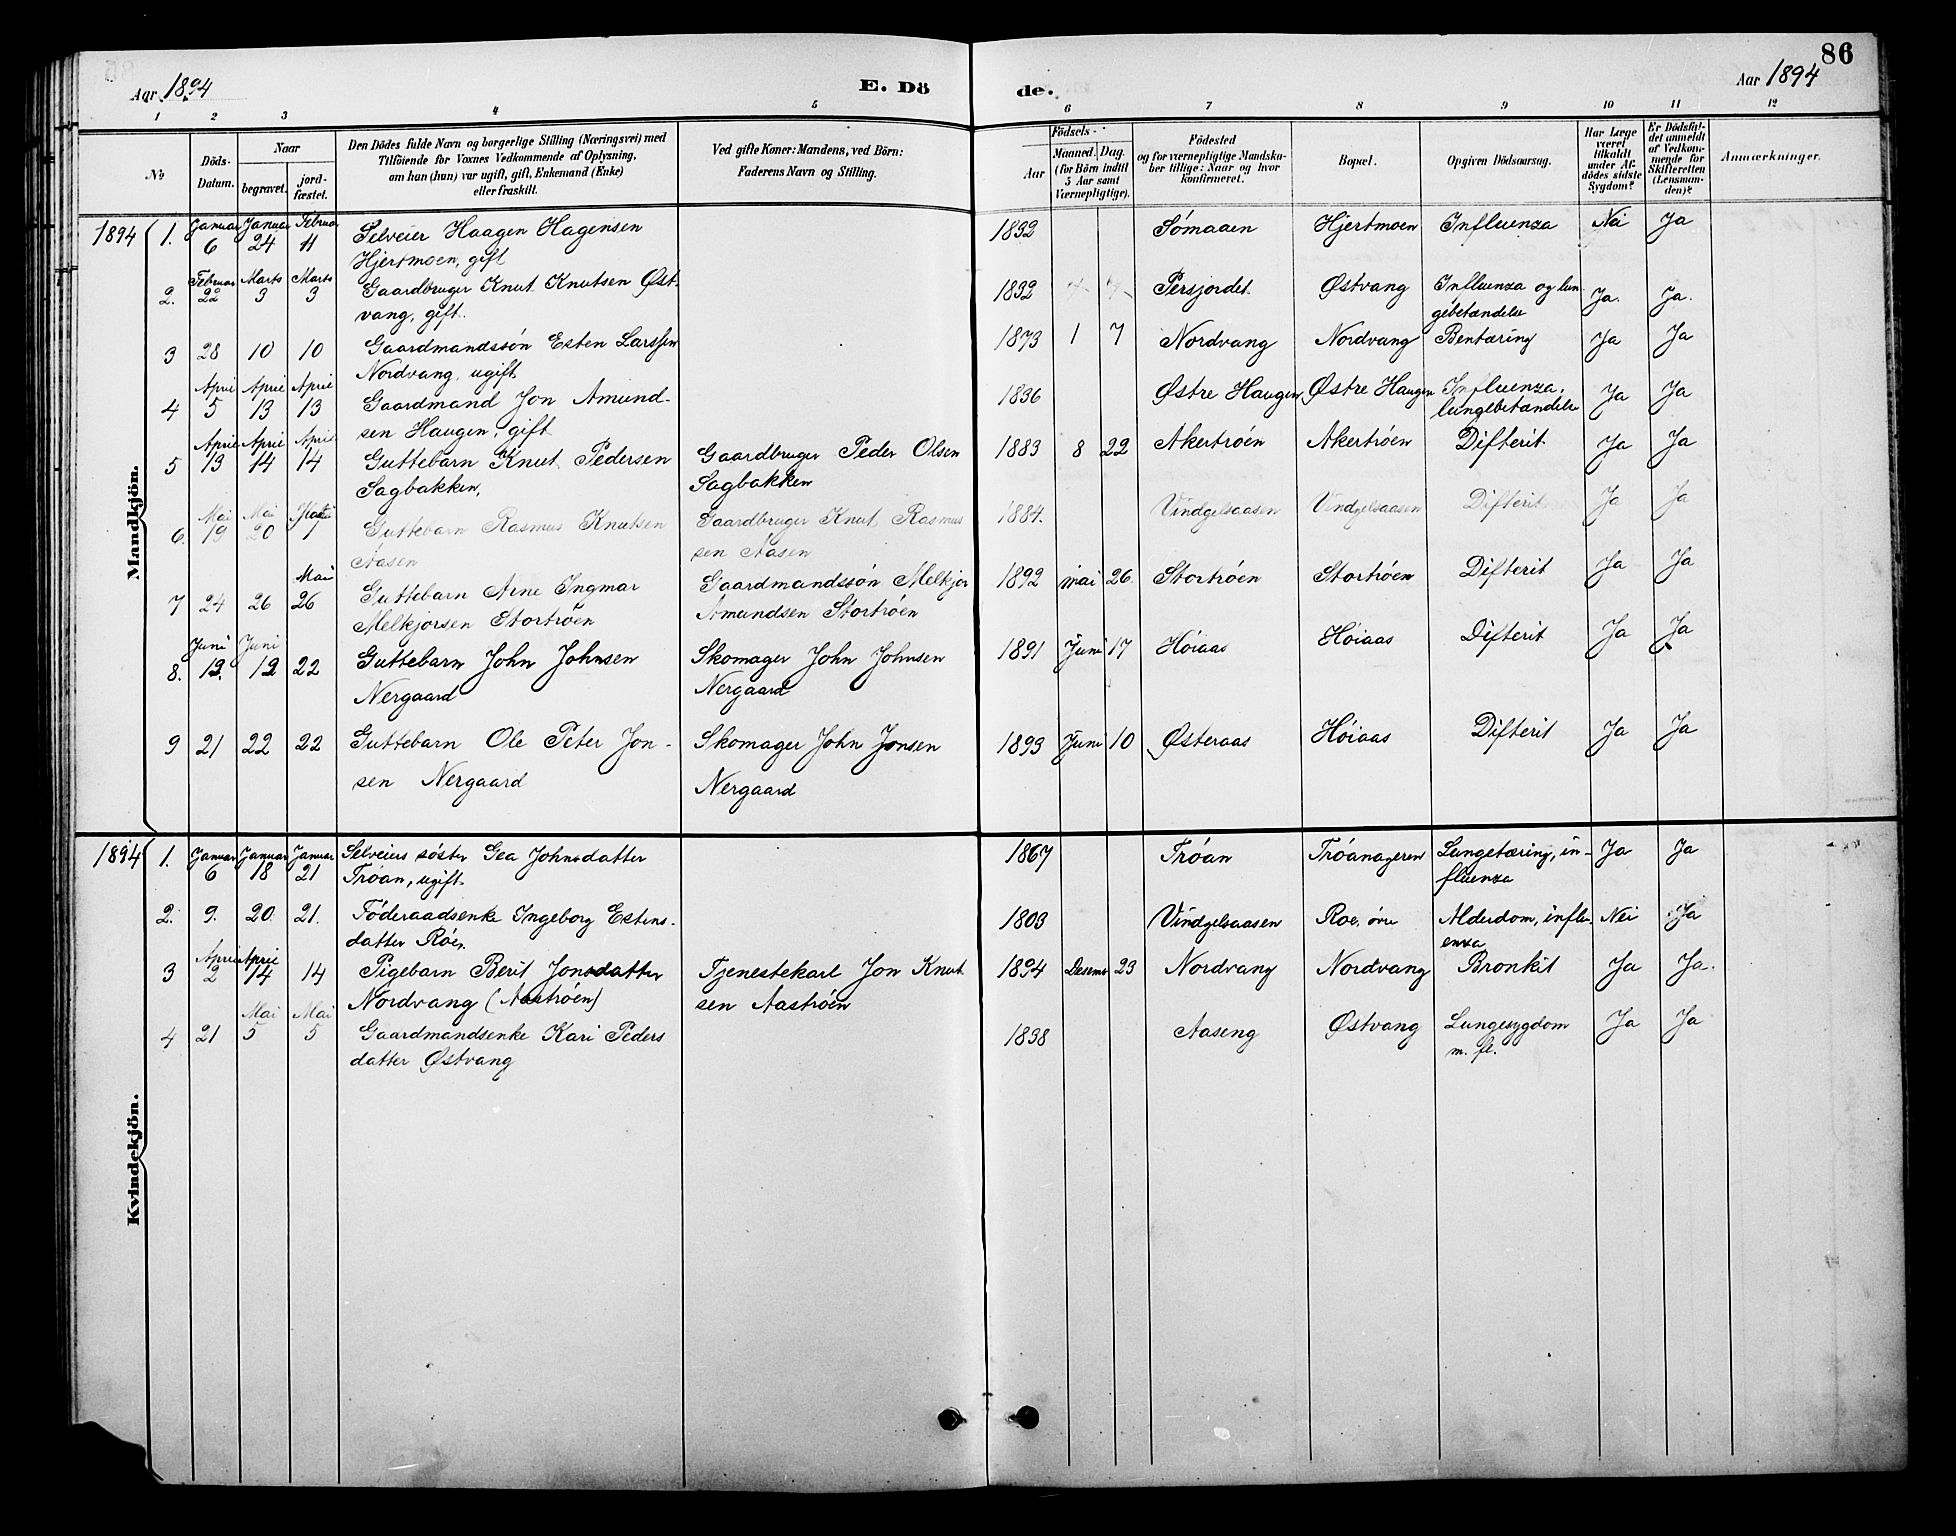 86
Aar 1894 E. Dö de. Aar 1894
1 2 3 4 5 6 7 8 9 10 11 12
№ Döds-Datum. Naar begravet. jord-fæstet. Den Dödes fulde Navn og borgerlige Stilling (Næringsvei) med Tilföiende for Voxnes Vedkommende af Oplysning, om han (hun) var ugift, gift, Enkemand (Enke) eller fraskilt. Ved gifte Koner: Mandens, ved Börn: Faderens Navn og Stilling. Födsels- Aar Maaned. Dag. (for Börn indtil 5 Aar samt Værnepligtige). Födested og for værnepligtige Mandskaber tillige: Naar og hvor konfirmeret. Bopæl. Opgiven Dödsaarsag. Har Læge været tilkaldt under Afdödes sidste Sygdom? Er Dödsfaldet anmeldt af Vedkommende for Skifteretten (Lensmanden)? Anmærkninger.
Mandkjön.
1894 1. Januar 6 Januar 24 Februar 11 Selveier Haagen Hagensen 1832 Sömaaen Hjertmoen Influenza Nei Ja
Hjertmoen, gift
2. Februar 22 Marts 3 Marts 3 Gaardbruger Knut Knutsen Øst- 1832 Persjordet Østvang Influenza og lun- Ja. Ja.
vang, gift. gebetændelse
3 28 10 10 Gaardmandssön Esten Larssen 1873 1 7 Nordvang Nordvang Bentæring Ja Ja
Nordvang, ugift
4 April 5 April 13 April 13 Gaardmand Jon Amund- 1836 Østre Haugen Østre Haugen Influenza, Ja Ja
sen Haugen, gift lungebetændelse
5 April 13 April 14 April 14 Guttebarn Knut Pedersen Gaardbruger Peder Olsen 1883 8 22 Akertröen Akertröen Difterit Ja Ja
Sagbakken, Sagbakken
6. Mai 19 Mai 20 1 Guttebarn Rasmus Knutsen Gaardbruger Knut Rasmus 1884. Vindgelsaasen Vindgelsaasen Difterit Ja Ja
Aasen sen Aasen
7 24 26 Mai 26 Guttebarn Arne Ingmar Gaardmandssön Melkjor 1892 Mai 26. Stortröen Stortröen Difterit Ja Ja
Melkjorsen Stortröen Amundsen Stortröen
8. Juni 19. Juni 19 22 Guttebarn John Johnsen Skomager John Johnsen 1891 Juni 17 Höiaas Höiaas Difterit Ja Ja
Nergaard Nergaard
9 21 22 22 Guttebarn Ole Peter Jon- Skomager John Jonsen 1893 Juni 10 Østeraas Höiaas Difterit Ja Ja
sen Nergaard Nergaard
Kvindekjön.
1894 1. Januar 6 Januar 18 Januar 21 Selveiers söster Gea Johnsdatter 1867 Tröan Tröanageren Lungetæring, in- Ja Ja
Tröan, ugift fluenza
2. 9. 20. 21. Föderaadsenke Ingeborg Estens- 1803 Vindgelsaasen Roe, övre Alderdom, influ- Nei Ja
datter Röe, enza
3 April 2 April 14 14 Pigebarn Berit Jonsdatter Tjenestekarl Jon Knut 1894 23 Nordvang Nordvang Bronkit Ja Ja.
Nordvang (Aaströen) sen Aaströen
4 21 Mai 5 Mai 5 Gaardmandsenke Kari Peders 1838 Aaseng Østvang Lungesygdom Ja Ja
datter Østvang m. fl.